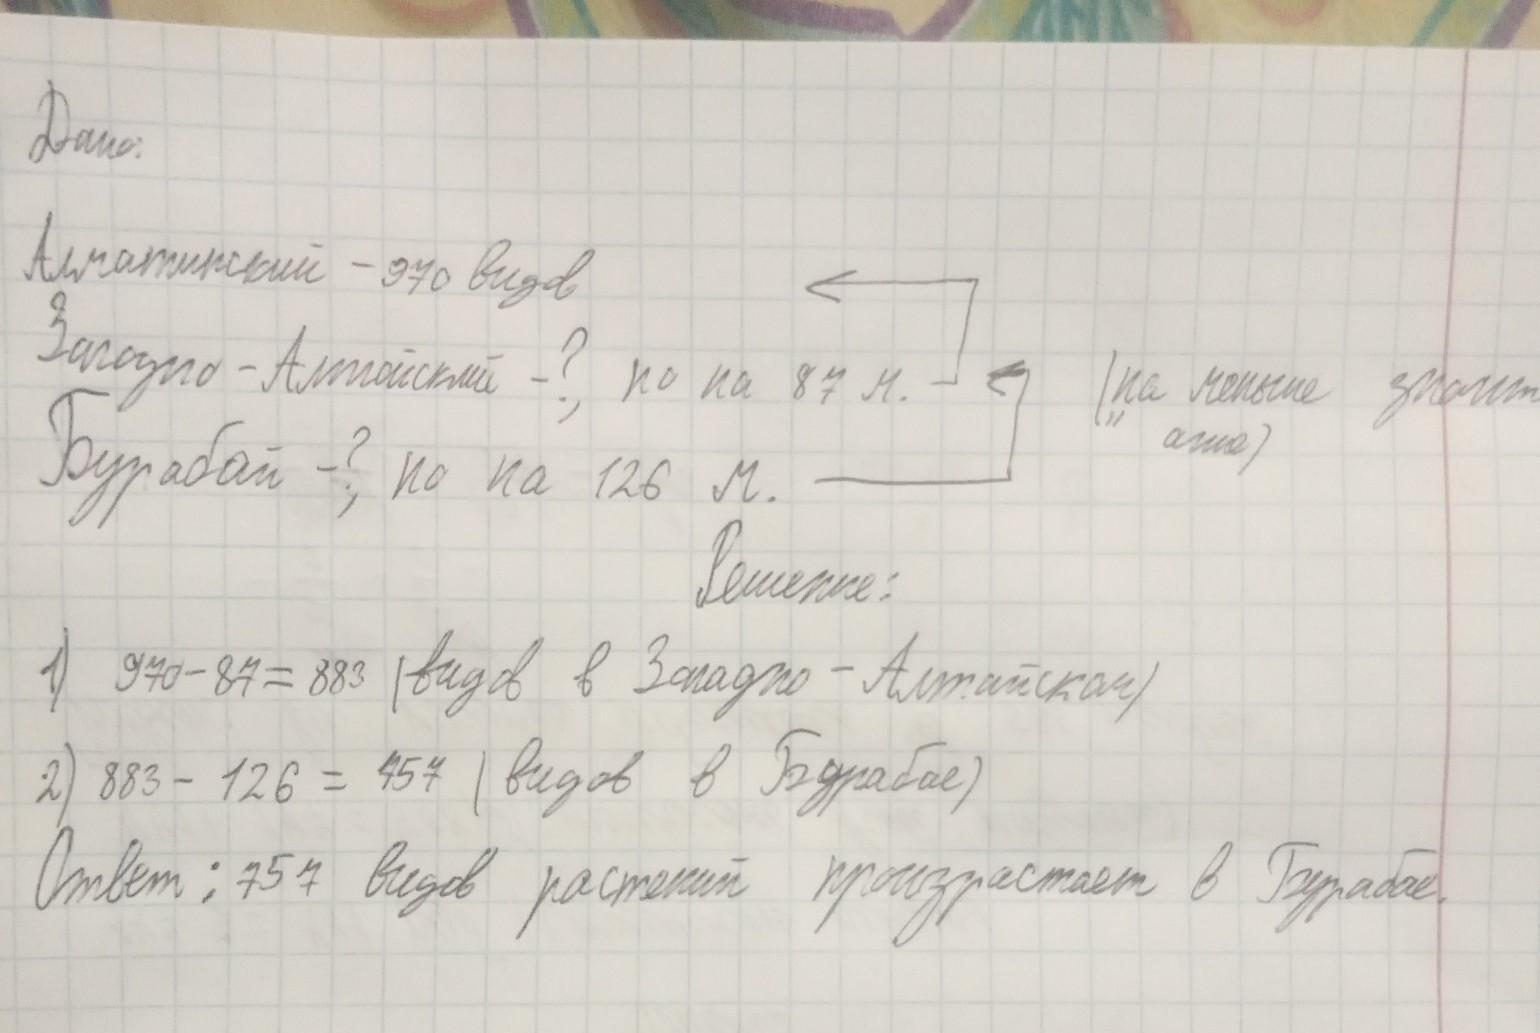 Дано:
Алматинский - 970 видов
Западно - Алтайский - ?, но на 87 м. (на меньше значит
"
Бурабай - ?, но на 126 м.
Решение:
1) 970 - 87 = 883 (видов в Западно - Алтайском)
2) 883 - 126 = 757 (видов в Бурабае)
Ответ: 757 видов растений произрастает в Бурабае.